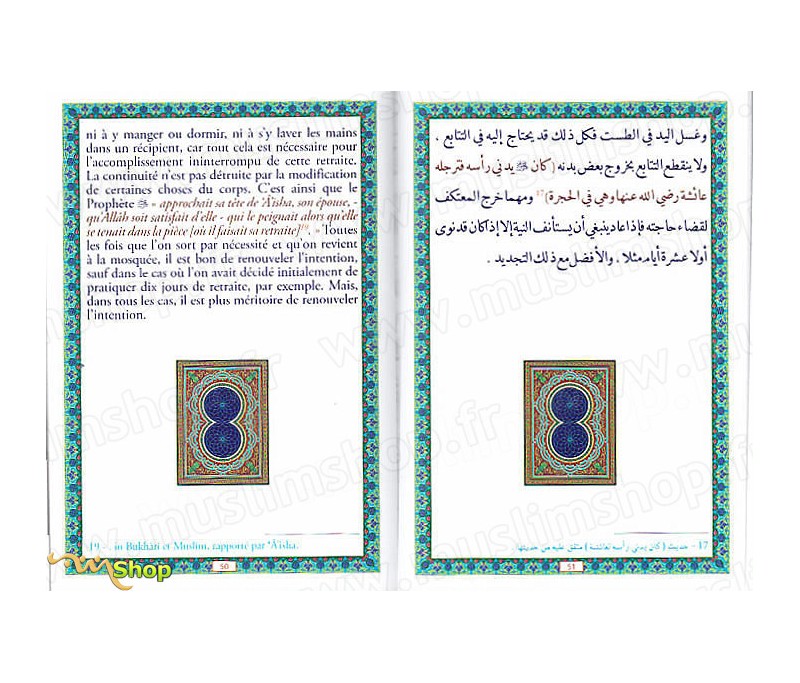 ni à y manger ou dormir, ni à s'y laver les mains
dans un récipient, car tout cela est nécessaire pour
l'accomplissement ininterrompu de cette retraite.
La continuité n'est pas détruite par la modification
de certaines choses du corps. C'est ainsi que le
Prophète ﷺ « approchait sa tête de 'Â'isha, son épouse, -
qu'Allâh soit satisfait d'elle - qui le peignait alors qu'elle
se tenait dans la pièce [où il faisait sa retraite]19. » Toutes
les fois que l'on sort par nécessité et qu'on revient
à la mosquée, il est bon de renouveler l'intention,
sauf dans le cas où l'on avait décidé initialement de
pratiquer dix jours de retraite, par exemple. Mais,
dans tous les cas, il est plus méritoire de renouveler
l'intention.
19 - in Bukhârî et Muslim, rapporté par 'Â'isha.
50
وغسل اليد في الطست فكل ذلك قد يحتاج إليه في التتابع .
ولا ينقطع التتابع بخروج بعض بدنه (كان ﷺ يدني رأسه فترجله
عائشة رضي الله عنها وهي في الحجرة)17 ومهما خرج المعتكف
لقضاء حاجته فإذا عاد ينبغي أن يستأنف النية إلا إذا كان قد نوى
أولا عشرة أيام مثلا . والأفضل مع ذلك التجديد .
17 - حديث ( كان يدني رأسه لعائشة ) متفق عليه من حديثها.
51
mShop
www.muslimshop.fr